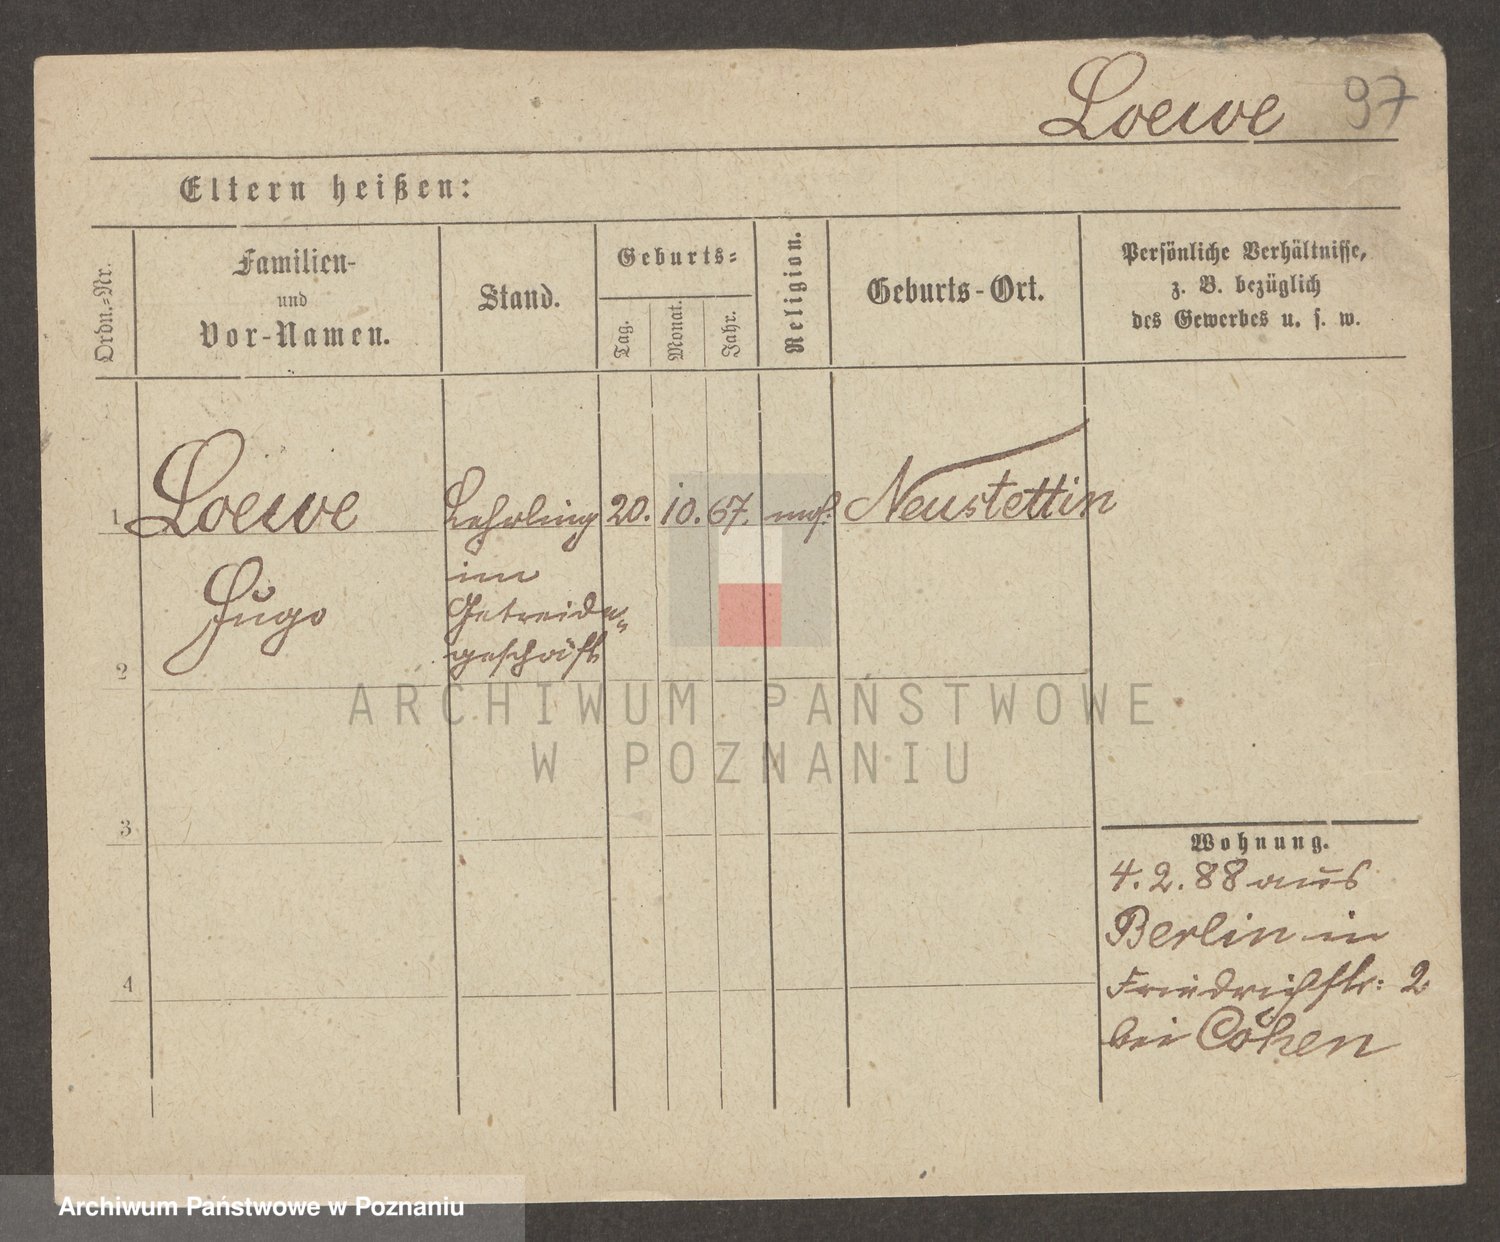 Loewe 97
Eltern heißen:
Ordn.-Nr.
Familien-
und
Vor-Namen.
Stand.
Geburts-
Tag.
Monat.
Jahr.
Religion.
Geburts-Ort.
Persönliche Verhältnisse,
z. B. bezüglich
des Gewerbes u. s. w.
1 Loewe Lehrling 20. 10. 67. mos. Neustettin
im
Hugo Getreide-
geschäft
2
ARCHIWUM PAŃSTWOWE
W POZNANIU
3
Wohnung.
4. 2. 88 aus
Berlin in
4
Friedrichstr: 2
bei Cohen
Archiwum Państwowe w Poznaniu